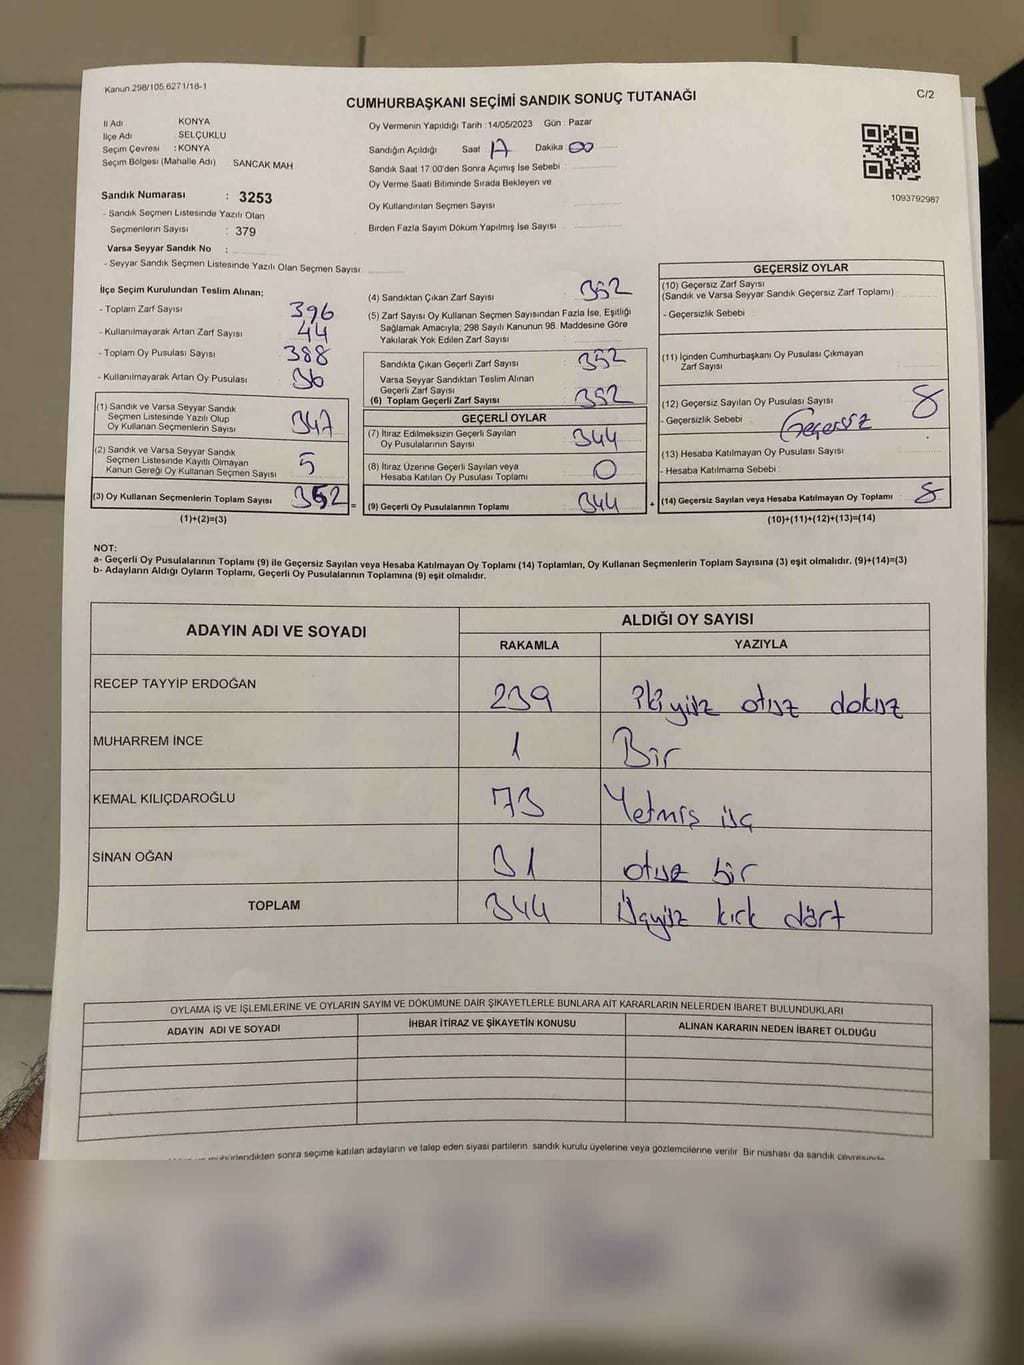 Kanun.298/105,6271/18-1
C/2
CUMHURBAŞKANI SEÇİMİ SANDIK SONUÇ TUTANAĞI
İl Adı KONYA
İlçe Adı SELÇUKLU
Seçim Çevresi : KONYA
Seçim Bölgesi (Mahalle Adı) SANCAK MAH
Sandık Numarası : 3253
- Sandık Seçmen Listesinde Yazılı Olan
Seçmenlerin Sayısı : 379
Varsa Seyyar Sandık No :
- Seyyar Sandık Seçmen Listesinde Yazılı Olan Seçmen Sayısı
Oy Vermenin Yapıldığı Tarih :14/05/2023 Gün : Pazar
Sandığın Açıldığı Saat 17 Dakika 00
Sandık Saat 17:00'den Sonra Açımış İse Sebebi :
Oy Verme Saati Bitiminde Sırada Bekleyen ve
Oy Kullandırılan Seçmen Sayısı
Birden Fazla Sayım Döküm Yapılmış İse Sayısı :
1093792987
İlçe Seçim Kurulundan Teslim Alınan;
- Toplam Zarf Sayısı : 396
- Kullanılmayarak Artan Zarf Sayısı : 44
- Toplam Oy Pusulası Sayısı : 388
- Kullanılmayarak Artan Oy Pusulası : 36
(1) Sandık ve Varsa Seyyar Sandık
Seçmen Listesinde Yazılı Olup
Oy Kullanan Seçmenlerin Sayısı : 347
(2) Sandık ve Varsa Seyyar Sandık
Seçmen Listesinde Kayıtlı Olmayan
Kanun Gereği Oy Kullanan Seçmen Sayısı : 5
(3) Oy Kullanan Seçmenlerin Toplam Sayısı : 352 =
(1)+(2)=(3)
(4) Sandıktan Çıkan Zarf Sayısı : 352
(5) Zarf Sayısı Oy Kullanan Seçmen Sayısından Fazla İse, Eşitliği
Sağlamak Amacıyla; 298 Sayılı Kanunun 98. Maddesine Göre
Yakılarak Yok Edilen Zarf Sayısı :
Sandıkta Çıkan Geçerli Zarf Sayısı : 352
Varsa Seyyar Sandıktan Teslim Alınan
Geçerli Zarf Sayısı :
(6) Toplam Geçerli Zarf Sayısı : 352
GEÇERLİ OYLAR
(7) İtiraz Edilmeksizin Geçerli Sayılan
Oy Pusulalarının Sayısı : 344
(8) İtiraz Üzerine Geçerli Sayılan veya
Hesaba Katılan Oy Pusulası Toplamı : 0
(9) Geçerli Oy Pusulalarının Toplamı : 344 +
GEÇERSİZ OYLAR
(10) Geçersiz Zarf Sayısı
(Sandık ve Varsa Seyyar Sandık Geçersiz Zarf Toplamı) :
- Geçersizlik Sebebi :
(11) İçinden Cumhurbaşkanı Oy Pusulası Çıkmayan
Zarf Sayısı :
(12) Geçersiz Sayılan Oy Pusulası Sayısı : 8
- Geçersizlik Sebebi : Geçersiz
(13) Hesaba Katılmayan Oy Pusulası Sayısı :
- Hesaba Katılmama Sebebi :
(14) Geçersiz Sayılan veya Hesaba Katılmayan Oy Toplamı : 8
(10)+(11)+(12)+(13)=(14)
NOT:
a- Geçerli Oy Pusulalarının Toplamı (9) ile Geçersiz Sayılan veya Hesaba Katılmayan Oy Toplamı (14) Toplamları, Oy Kullanan Seçmenlerin Toplam Sayısına (3) eşit olmalıdır. (9)+(14)=(3)
b- Adayların Aldığı Oyların Toplamı, Geçerli Oy Pusulalarının Toplamına (9) eşit olmalıdır.
ADAYIN ADI VE SOYADI
ALDIĞI OY SAYISI
RAKAMLA YAZIYLA
RECEP TAYYİP ERDOĞAN 239 ikiyüz otuz dokuz
MUHARREM İNCE 1 Bir
KEMAL KILIÇDAROĞLU 73 Yetmiş üç
SİNAN OĞAN 31 otuz bir
TOPLAM 344 Üçyüz kırk dört
OYLAMA İŞ VE İŞLEMLERİNE VE OYLARIN SAYIM VE DÖKÜMÜNE DAİR ŞİKAYETLERLE BUNLARA AİT KARARLARIN NELERDEN İBARET BULUNDUKLARI
ADAYIN ADI VE SOYADI İHBAR İTİRAZ VE ŞİKAYETİN KONUSU ALINAN KARARIN NEDEN İBARET OLDUĞU
mühürlendikten sonra seçime katılan adayların ve talep eden siyasi partilerin sandık kurulu üyelerine veya gözlemcilerine verilir Bir nüshası da sandık çevresinde